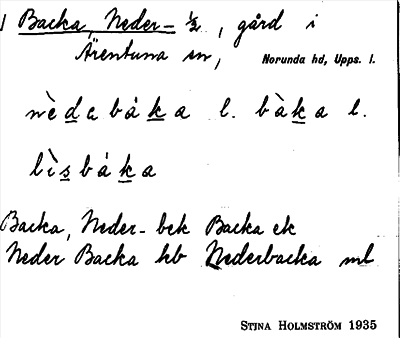 1 Backa, Neder- ½, gård i
Ärentuna sn, Norunda hd, Upps. l.
nè̀dabáka l. bàka l.
lìsbáka
Backa, Neder- bek Backa ek
Neder Backa hb Nederbacka ml
STINA HOLMSTRÖM 1935